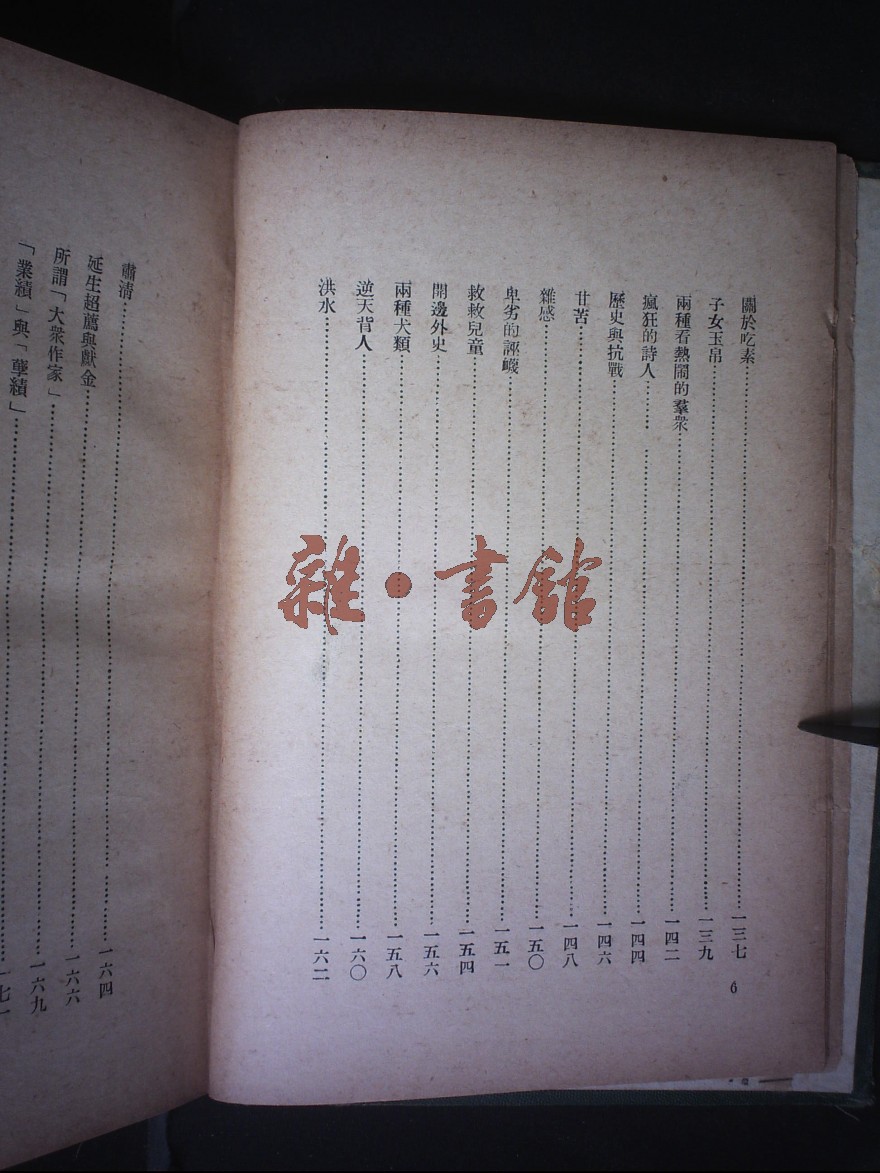 關於吃素……一三七
子女玉帛……一三九
兩種看熱鬧的羣衆……一四二
瘋狂的詩人……一四四
歷史與抗戰……一四六
甘苦……一四八
雜感……一五〇
卑劣的誣衊……一五一
救救兒童……一五四
開邊外史……一五六
兩種犬類……一五八
逆天背人……一六〇
洪水……一六二
6
肅清……一六四
延生超薦與獻金……一六六
所謂「大衆作家」……一六九
「業績」與「孽績」……一七一
雜·書館